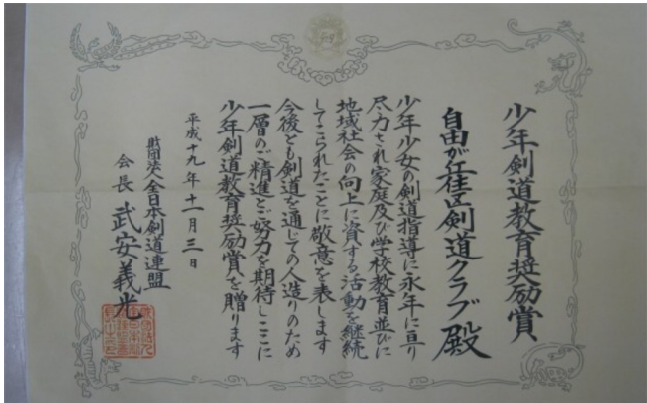 少年剣道教育奨励賞
自由が丘住区剣道クラブ 殿
少年少女の剣道指導に永年に亘り
尽力され家庭及び学校教育並びに
地域社会の向上に資する活動を継続
してこられたことに敬意を表します
今後とも剣道を通じての人造りのため
一層のご精進とご努力を期待しここに
少年剣道教育奨励賞を贈ります
平成十九年十一月三日
財団法人全日本剣道連盟
会長 武安義光